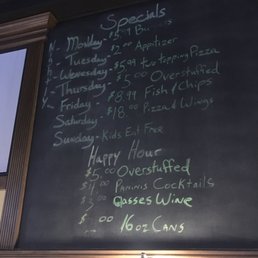 Specials
Monday - $5.99 Bu
Tuesday - $2.00 Appitizer
Wednesday - $5.99 two topping Pizza
Thursday - $5.00 Overstuffed
Friday - $8.99 Fish / Chips
Saturday - $18.00 Pizza & Wings
Sunday - Kids Eat Free
Happy Hour
$5.00 Overstuffed
$4.00 Paninis Cocktails
$3.00 Glasses Wine
$ .00 16 oz Cans